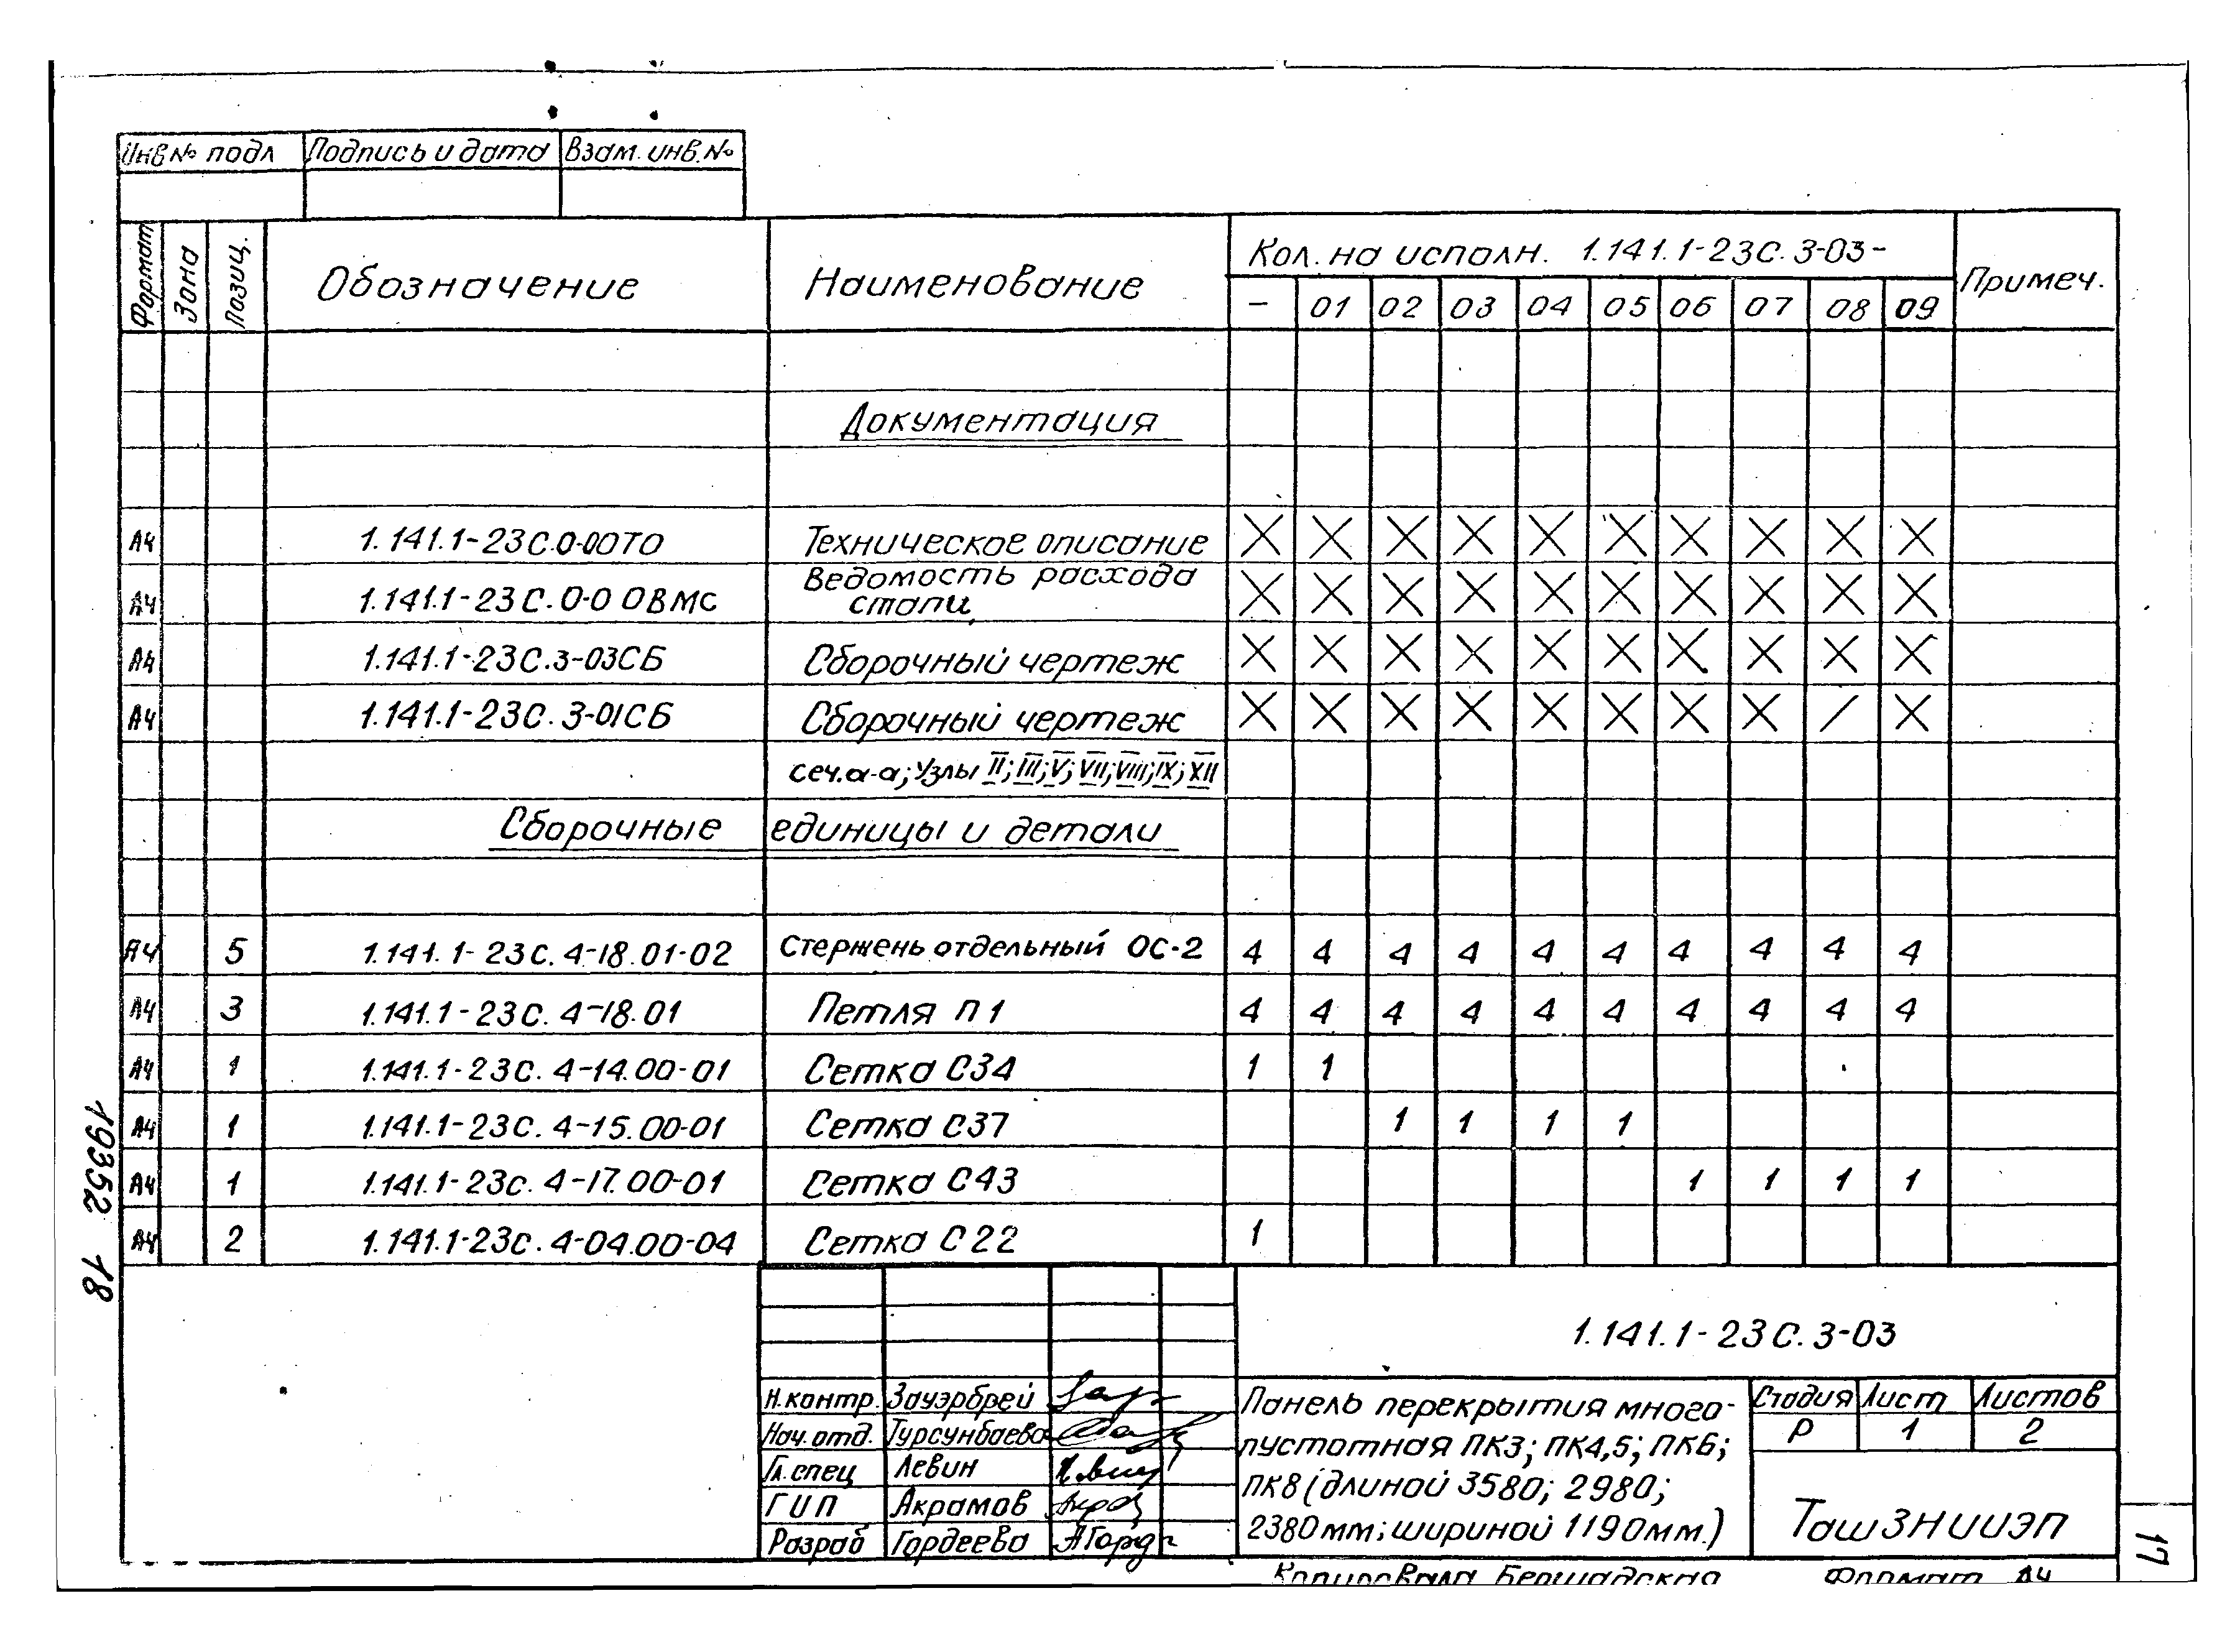 Инв № подл Подпись и дата Взам. инв. №
Формат Зона Позиц. Обозначение Наименование Кол. на исполн. 1.141.1-23С.3-03- Примеч.
– 01 02 03 04 05 06 07 08 09
Документация
А4 1.141.1-23С.0-00ТО Техническое описание X X X X X X X X X X
А4 1.141.1-23С.0-00ВМС Ведомость расхода стали X X X X X X X X X X
А4 1.141.1-23С.3-03СБ Сборочный чертеж X X X X X X X X X X
А4 1.141.1-23С.3-01СБ Сборочный чертеж X X X X X X X X / X
сеч. а-а; Узлы II; III; V; VII; VIII; IX; XII
Сборочные единицы и детали
А4 5 1.141.1-23С.4-18.01-02 Стержень отдельный ОС-2 4 4 4 4 4 4 4 4 4 4
А4 3 1.141.1-23С.4-18.01 Петля П1 4 4 4 4 4 4 4 4 4 4
А4 1 1.141.1-23С.4-14.00-01 Сетка С34 1 1
А4 1 1.141.1-23С.4-15.00-01 Сетка С37 1 1 1 1
А4 1 1.141.1-23с.4-17.00-01 Сетка С43 1 1 1 1
А4 2 1.141.1-23с.4-04.00-04 Сетка С22 1
19352 18
1.141.1-23С.3-03
Н.контр. Зауэрбрей
Нач.отд. Турсунбаева
Гл.спец Левин
ГИП Акрамов
Разраб Гордеева
Панель перекрытия много-
пустотная ПК3; ПК4,5; ПК6;
ПК8 (длиной 3580; 2980;
2380мм; шириной 1190мм.)
Стадия Лист Листов
Р 1 2
ТашЗНИИЭП
17
Копировала Бершадская Формат А4